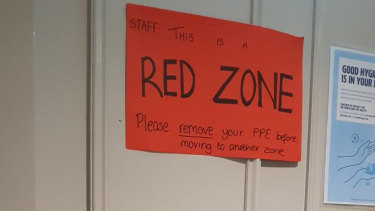 STAFF: THIS IS A
RED ZONE
Please remove your PPE before
moving to another zone
GOOD HYGI
IS IN YOUR